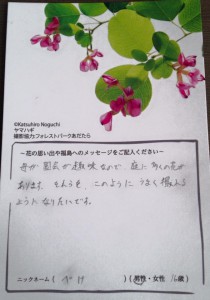 ©Katsuhiro Noguchi
ヤマハギ
撮影協力フォレストパークあだたら
～花の思い出や福島へのメッセージをご記入ください～
母が園芸が趣味なので庭に多くの花が
あります。そんな花を、このように うまく撮れる
ようになりたいです。
ニックネーム( )(男性・女性 歳)